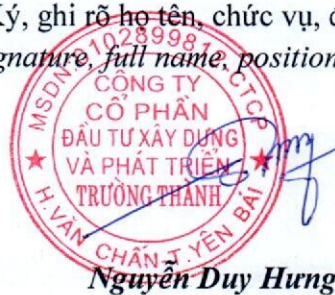 Ký, ghi rõ họ tên, chức vụ,
gnature, full name, position
MSDN:0102899812-CTCP
CÔNG TY
CỔ PHẦN
ĐẦU TƯ XÂY DỰNG
VÀ PHÁT TRIỂN
TRƯỜNG THÀNH
H.VĂN CHẤN-T.YÊN BÁI
Nguyễn Duy Hưng